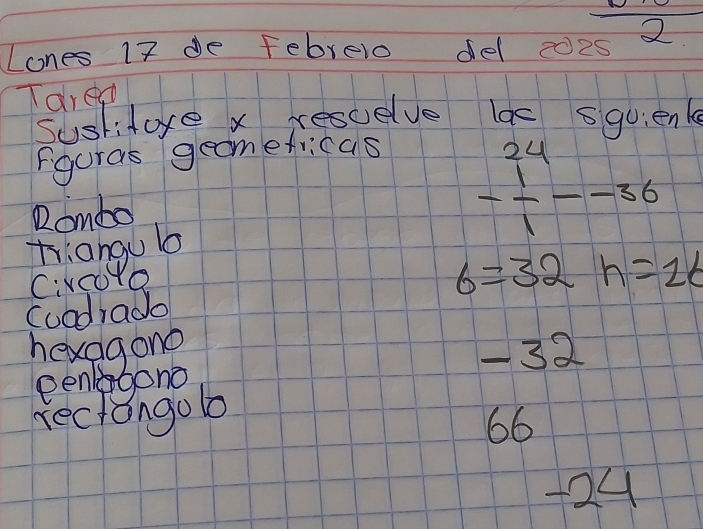 2
Lones 17 de Febrero del 2025
Tarea
Sustituye y resuelve las siguiente
Figuras geometricas
24
- - - -36
Rombo
triangulo
Circolo
b=32 h=26
Coodrado
hexagono
-32
pentogono
rectangulo
66
-24